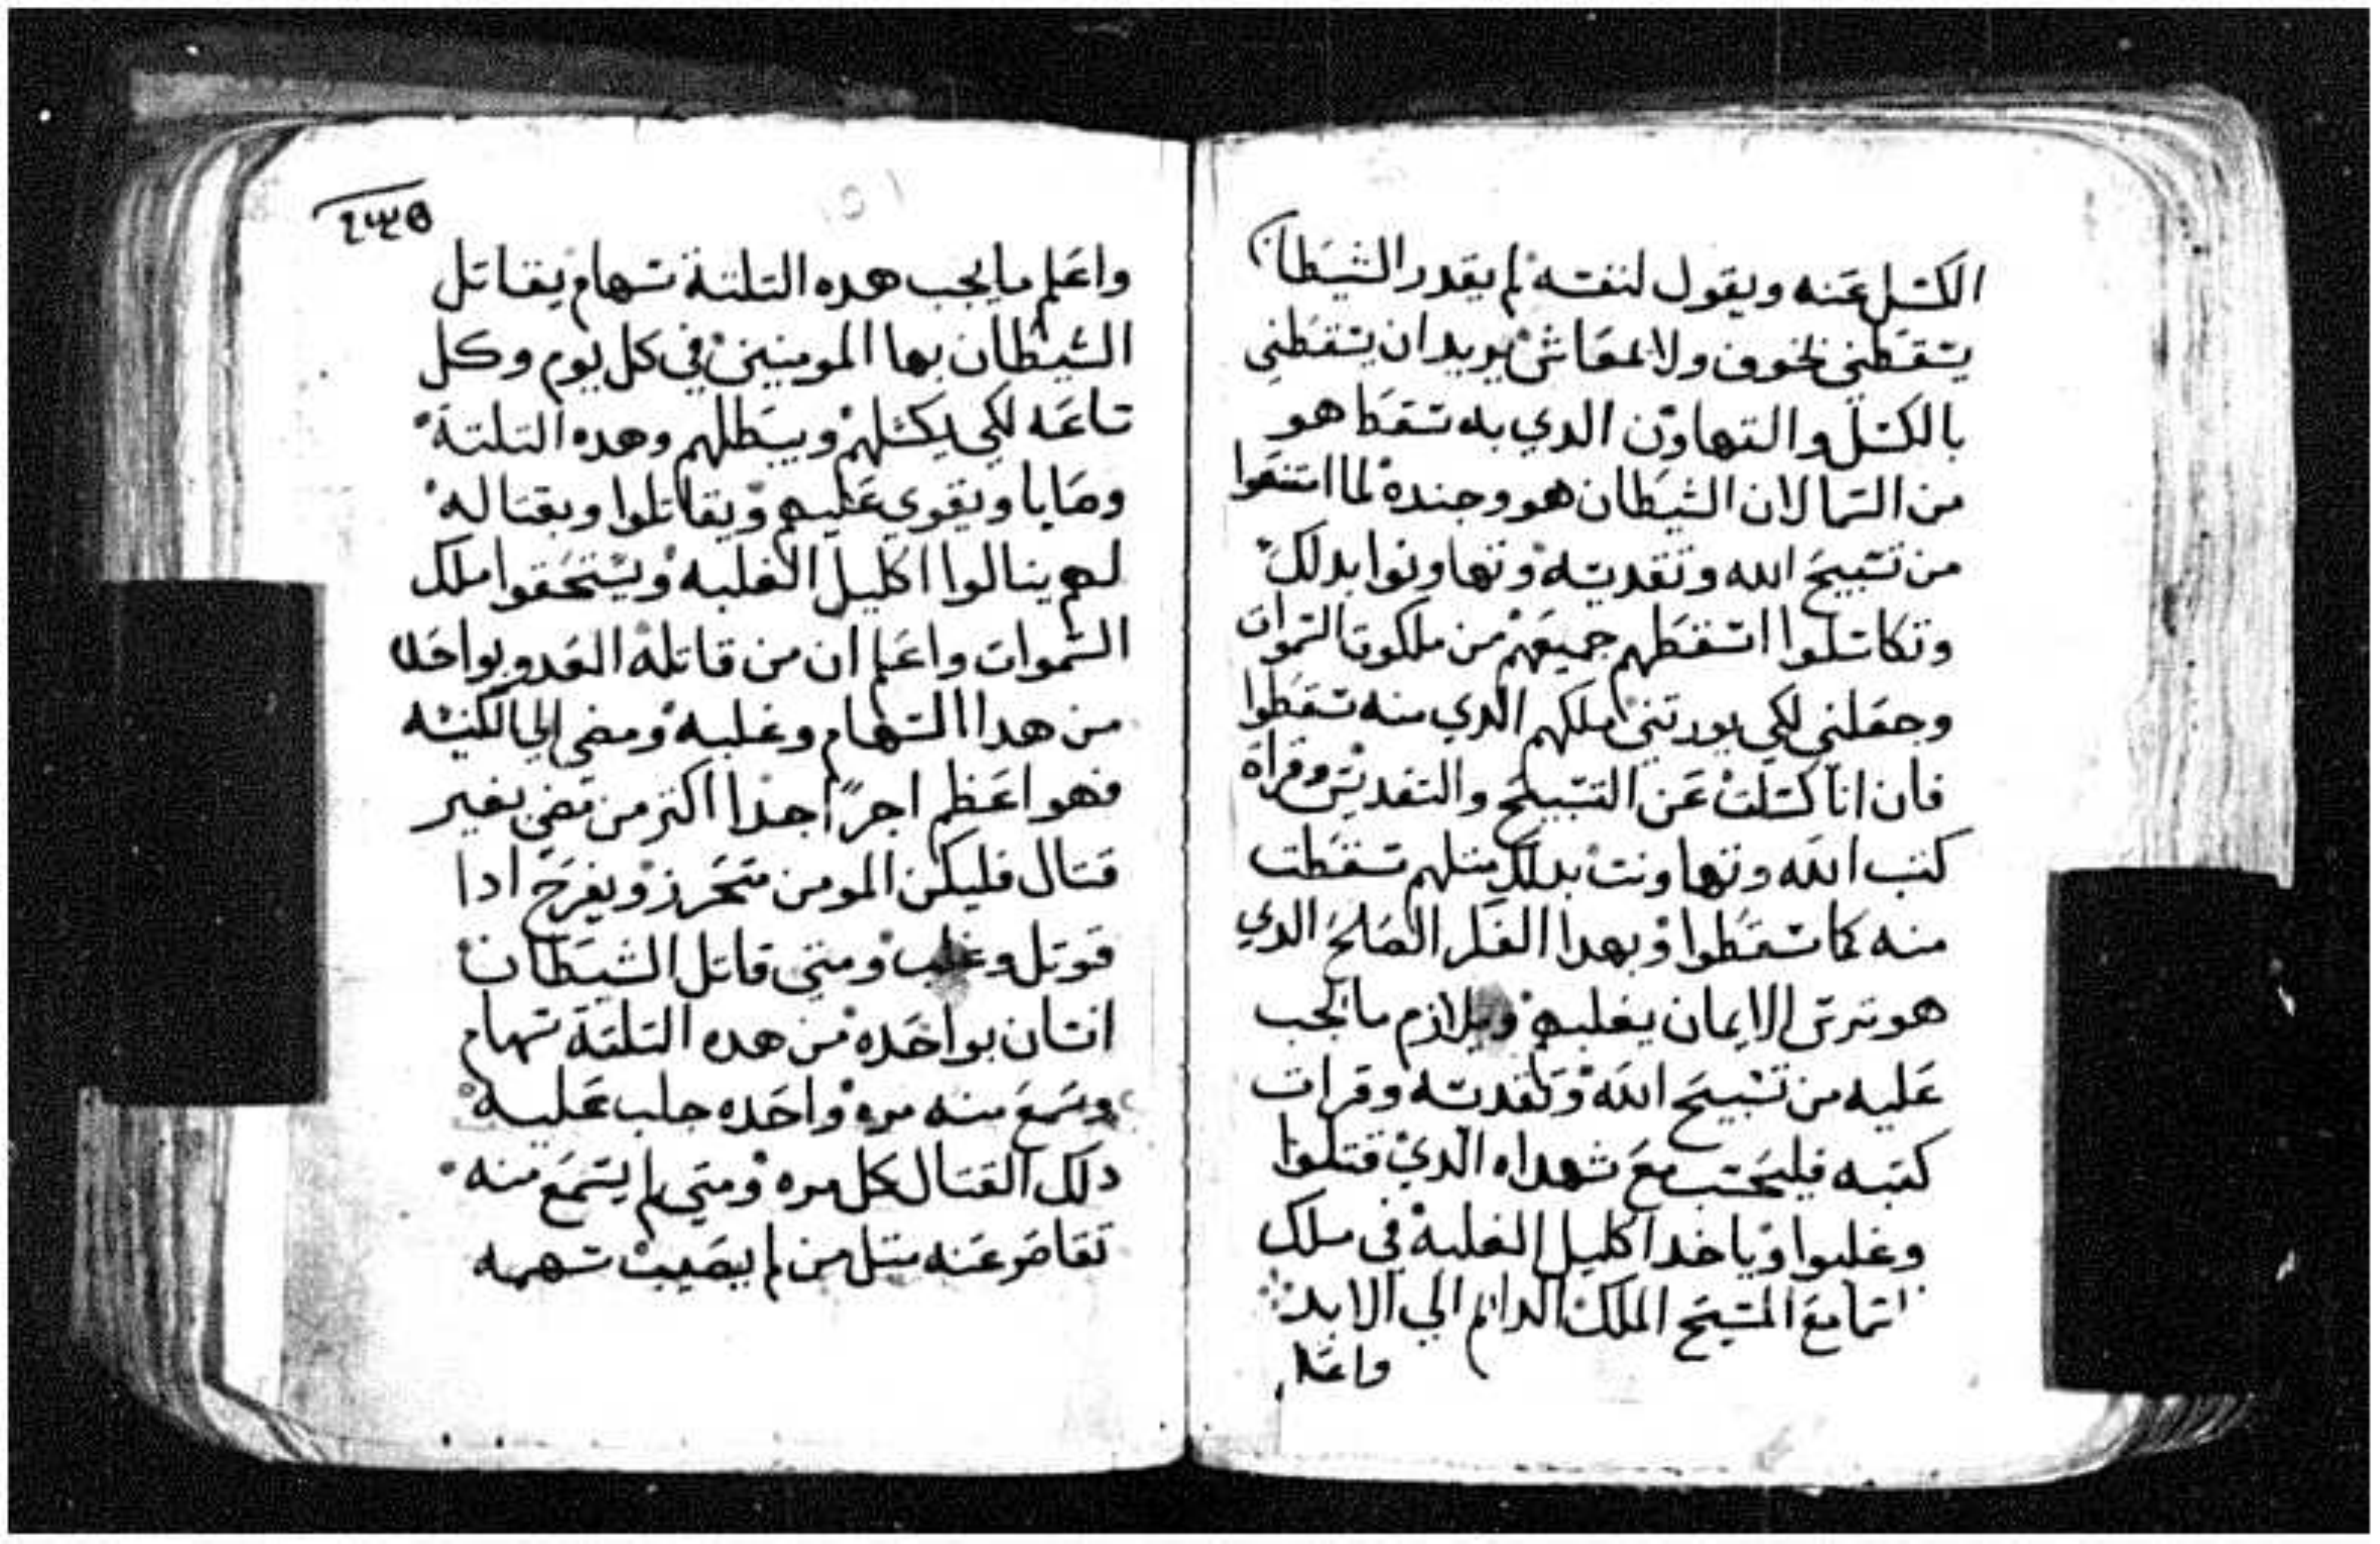 الكسل عنه ويقول لنفسه لم يقدر الشيطان
يسقطني لخوف ولا لمعاش يريد ان يسقطني
بالكسل والتهاون الدي به سقط هو
من السما لان الشيطان هو وجنده لما امتنعوا
من تسبيح الله وتقديسه وتهاونوا بدلك
وتكاسلوا اسقطهم جميعهم من ملكوت السموات
وجعلني لكي يورتني ملكهم الدي منه سقطوا
فان انا كسلت عن التسبيح والتقديس وقراة
كتب الله وتهاونت بدلك متلهم سقطت
منه كما سقطوا وبهدا الفكر الصالح الدي
هو ترس الايمان يغلبهم ويلازم ما يجب
عليه من تسبيح الله وتقديسه وقرات
كتبه فليحسب مع شهداه الدي قتلوا
وغلبوا وياخد اكليل الغلبة في ملك
السما مع المسيح الملك الدايم الي الابد
واعلم
٤٣٥
واعلم ما يجب هده التلتة سهام يقاتل
الشيطان بها المومنين في كل يوم وكل
ساعه لكي يكسلهم ويبطلهم وهده التلتة
وصايا ويقوي عليهم ويقاتلوا وبقتاله
لهم ينالوا اكليل الغلبه ويستحقوا ملك
السموات واعلم ان من قاتله العدو بواحده
من هدا السهام وغلبه ومضي الي الكنيسه
فهو اعظم اجرًا جدا اكتر من مضي بغير
قتال فليكن المومن متحرز ويفرح ادا
قوتل وغلب ومتي قاتل الشيطان
انسان بواحده من هده التلتة سهام
وسمع منه مره واحده جلب عليه
دلك القتال كل مره ومتي لم يسمع منه
تقاصر عنه متل من لم يصيب سهمه